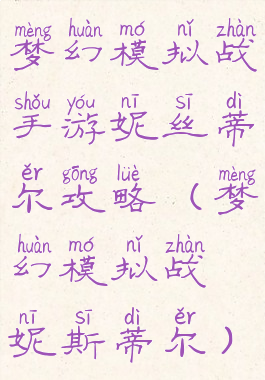 mèng huàn mó nǐ zhàn
梦幻模拟战
shǒu yóu nī sī dì
手游妮丝蒂
ěr gōng lüè mèng
尔攻略（梦
huàn mó nǐ zhàn
幻模拟战
nī sī dì ěr
妮斯蒂尔）